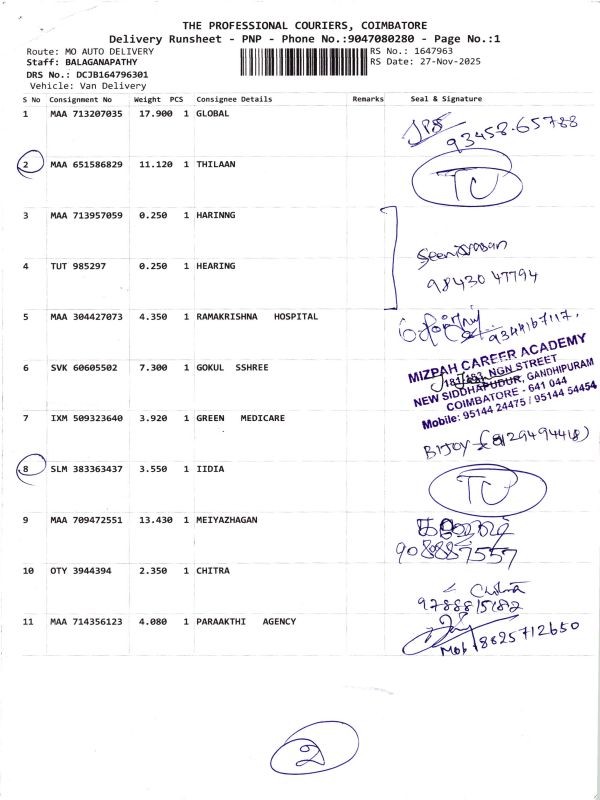 THE PROFESSIONAL COURIERS, COIMBATORE
Delivery Runsheet - PNP - Phone No.:9047080280 - Page No.:1
Route: MO AUTO DELIVERY RS No.: 1647963
Staff: BALAGANAPATHY RS Date: 27-Nov-2025
DRS No.: DCJB164796301
Vehicle: Van Delivery
S No Consignment No Weight PCS Consignee Details Remarks Seal & Signature
1 MAA 713207035 17.900 1 GLOBAL
93458-65788
2 MAA 651586829 11.120 1 THILAAN TC
3 MAA 713957059 0.250 1 HARINNG
Seenivasan
4 TUT 985297 0.250 1 HEARING 98430 47794
5 MAA 304427073 4.350 1 RAMAKRISHNA HOSPITAL 9344167117.
MIZPAH CAREER ACADEMY
6 SVK 60605502 7.300 1 GOKUL SSHREE 181/183, NGN STREET
NEW SIDDHAPUDUR, GANDHIPURAM
COIMBATORE - 641 044
Mobile: 95144 24475 / 95144 54454
7 IXM 509323640 3.920 1 GREEN MEDICARE
BIJOY - (8129494418)
8 SLM 383363437 3.550 1 IIDIA TC
9 MAA 709472551 13.430 1 MEIYAZHAGAN
9088887557
10 OTY 3944394 2.350 1 CHITRA
Chitra
9788815182
11 MAA 714356123 4.080 1 PARAAKTHI AGENCY
Mob 8825712650
2